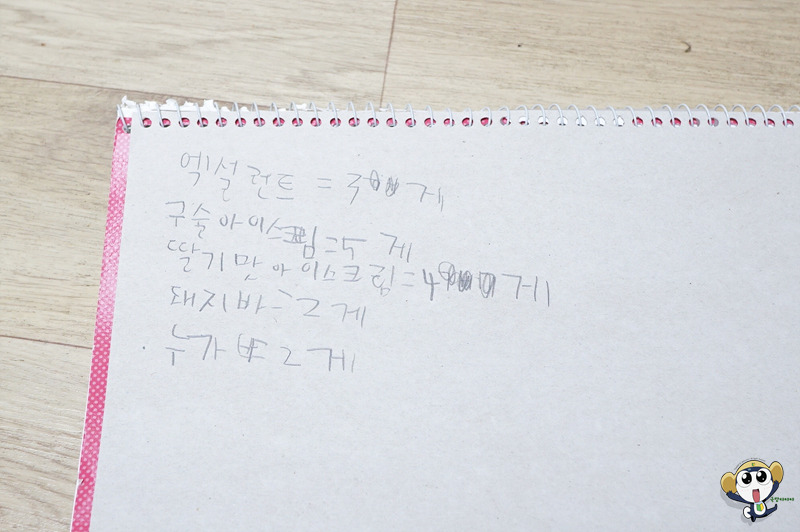 엑설런트 = 3게
구술아이스크림=5 게
딸기맛아이스크림=4게
돼지바=2게
누가바 2게